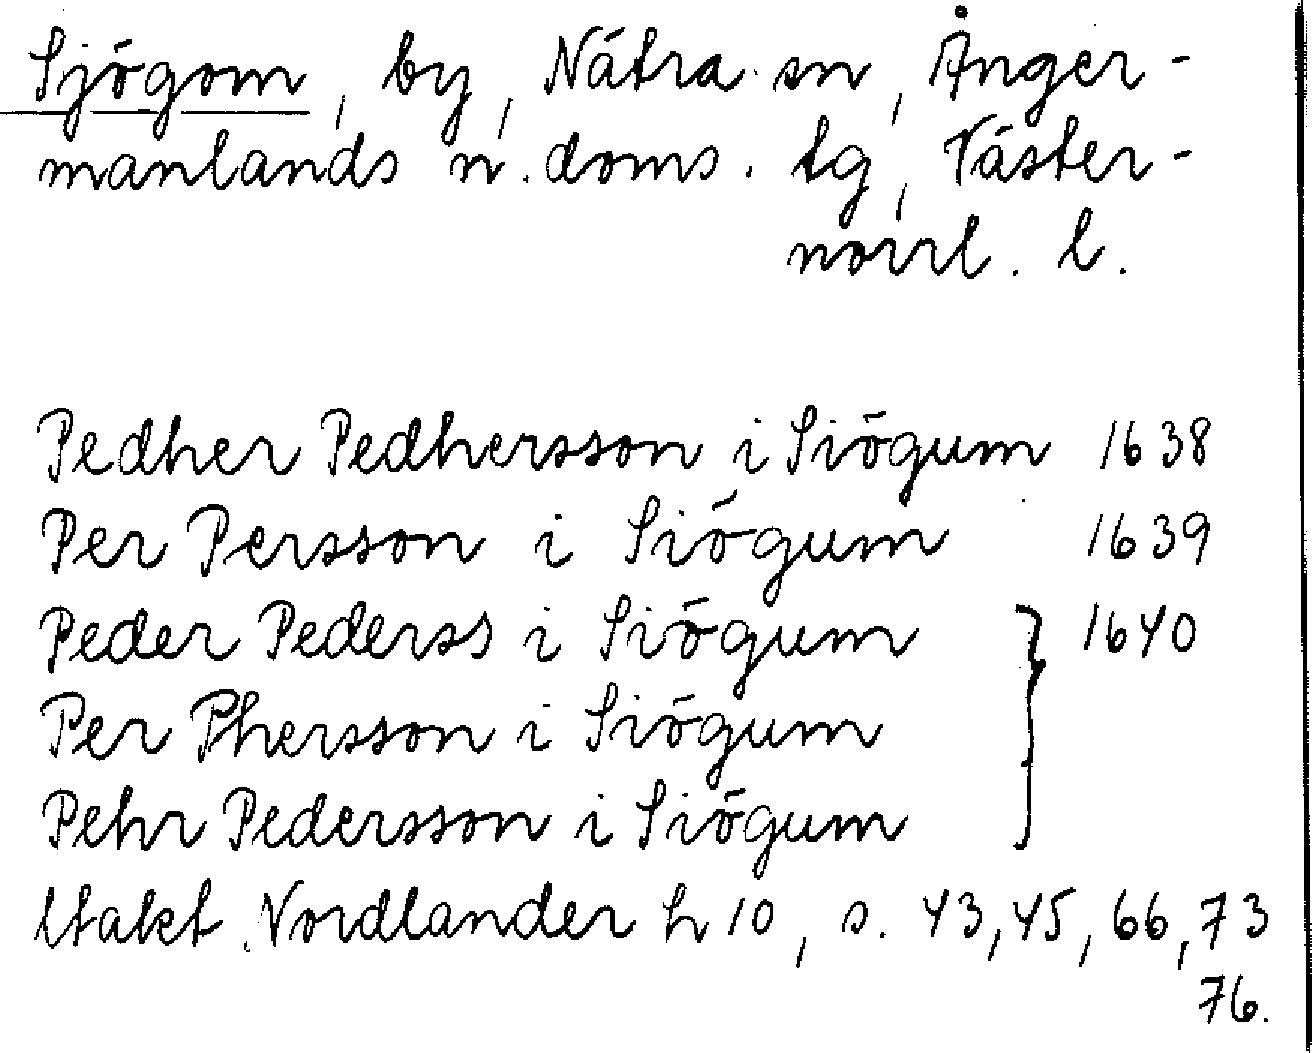 Sjögom, by, Nätra sn, Ånger-
manlands n. doms. tg, Väster-
norrl. l.
Pedher Pedhersson i Siögum 1638
Per Persson i Siögum 1639
Peder Pederss i Siögum } 1640
Per Phersson i Siögum
Pehr Pedersson i Siögum
Utakt. Nordlander h 10, s. 43, 45, 66, 73
76.